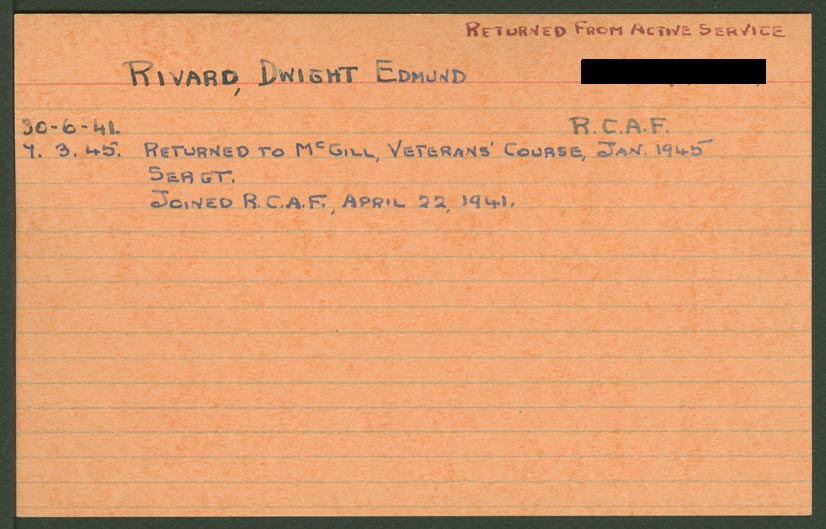 RETURNED FROM ACTIVE SERVICE
RIVARD, DWIGHT EDMUND
30-6-41. R.C.A.F.
7. 3. 45. RETURNED TO McGILL, VETERANS' COURSE, JAN. 1945
SERGT.
JOINED R.C.A.F., APRIL 22, 1941.